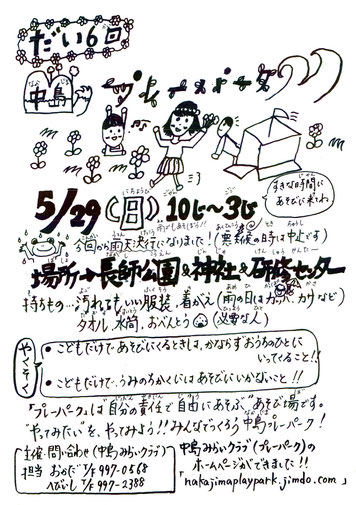 だい6回
中島
プレーパーク
すきな時間に
あそびに来てね
5/29(日)10じ～3じ
にちようび
雨でもあそぼう!!
今回から雨天決行になりました!(悪天候の時は中止です)
場所→長師公園&神社&研修センター
持ちもの…汚れてもいい服装、着がえ(雨の日はカッパ、カサなど)
タオル、水筒、おべんとう(必要な人)
やくそく
•こどもだけであそびにくるときは、かならずおうちのひとに
いってくること!!
•こどもだけで、うみのちかくにはあそびにいかないこと!!
"プレーパーク"は"自分の責任で自由にあそぶ"あそび場です。
"やってみたい"を、やってみよう!!みんなでつくろう中島プレーパーク!
主催・問い合わせ(中島みらいクラブ)
担当 おかだ T/F 997-0568
へびいし T/F 997-2388
中島みらいクラブ(プレーパーク)の
ホームページができました!!
「nakajimaplaypark.jimdo.com」